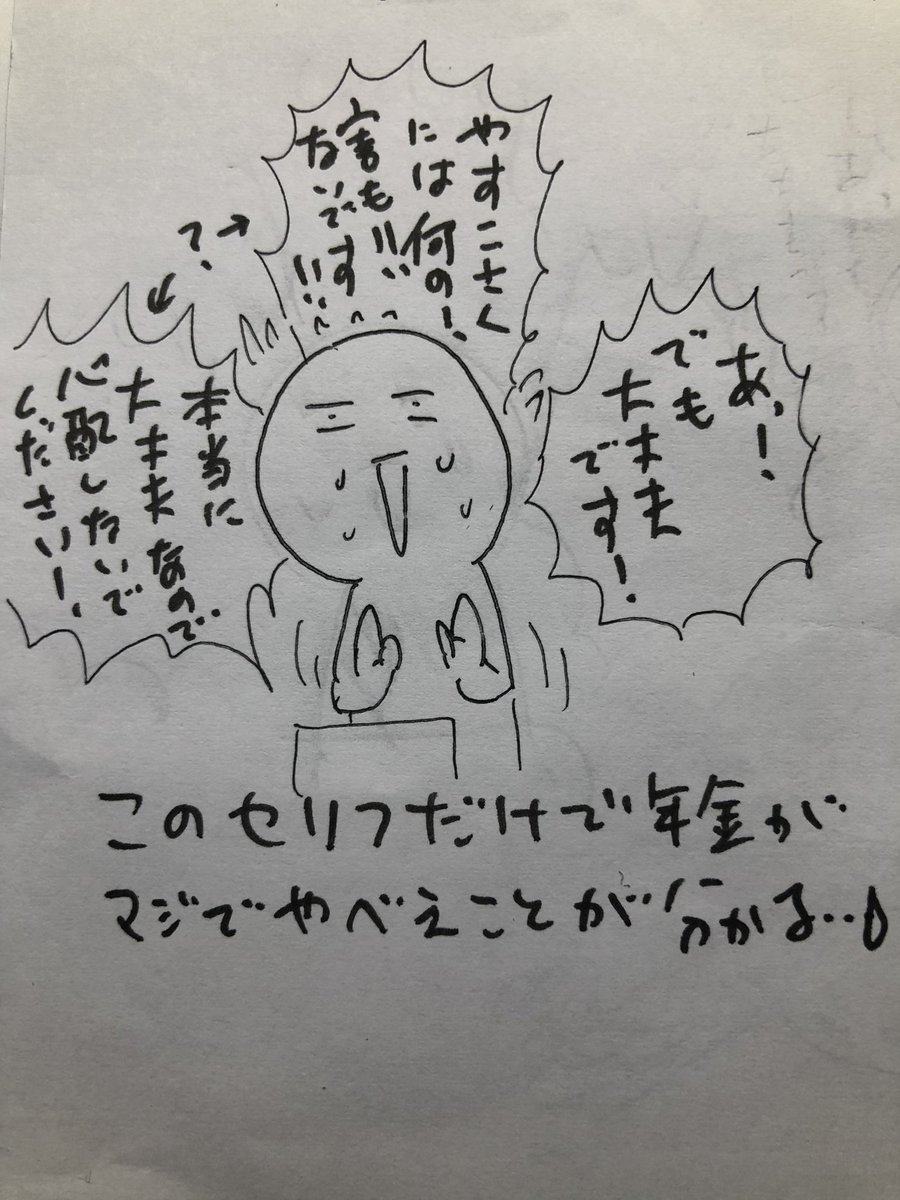 あっ!
でも
大丈夫
です!
やすこさく
には何の!
害も!!
ないです!!
?
本当に
大丈夫なので
心配しないで
ください!
このセリフだけで年金が
マジでやべえことが分かる…